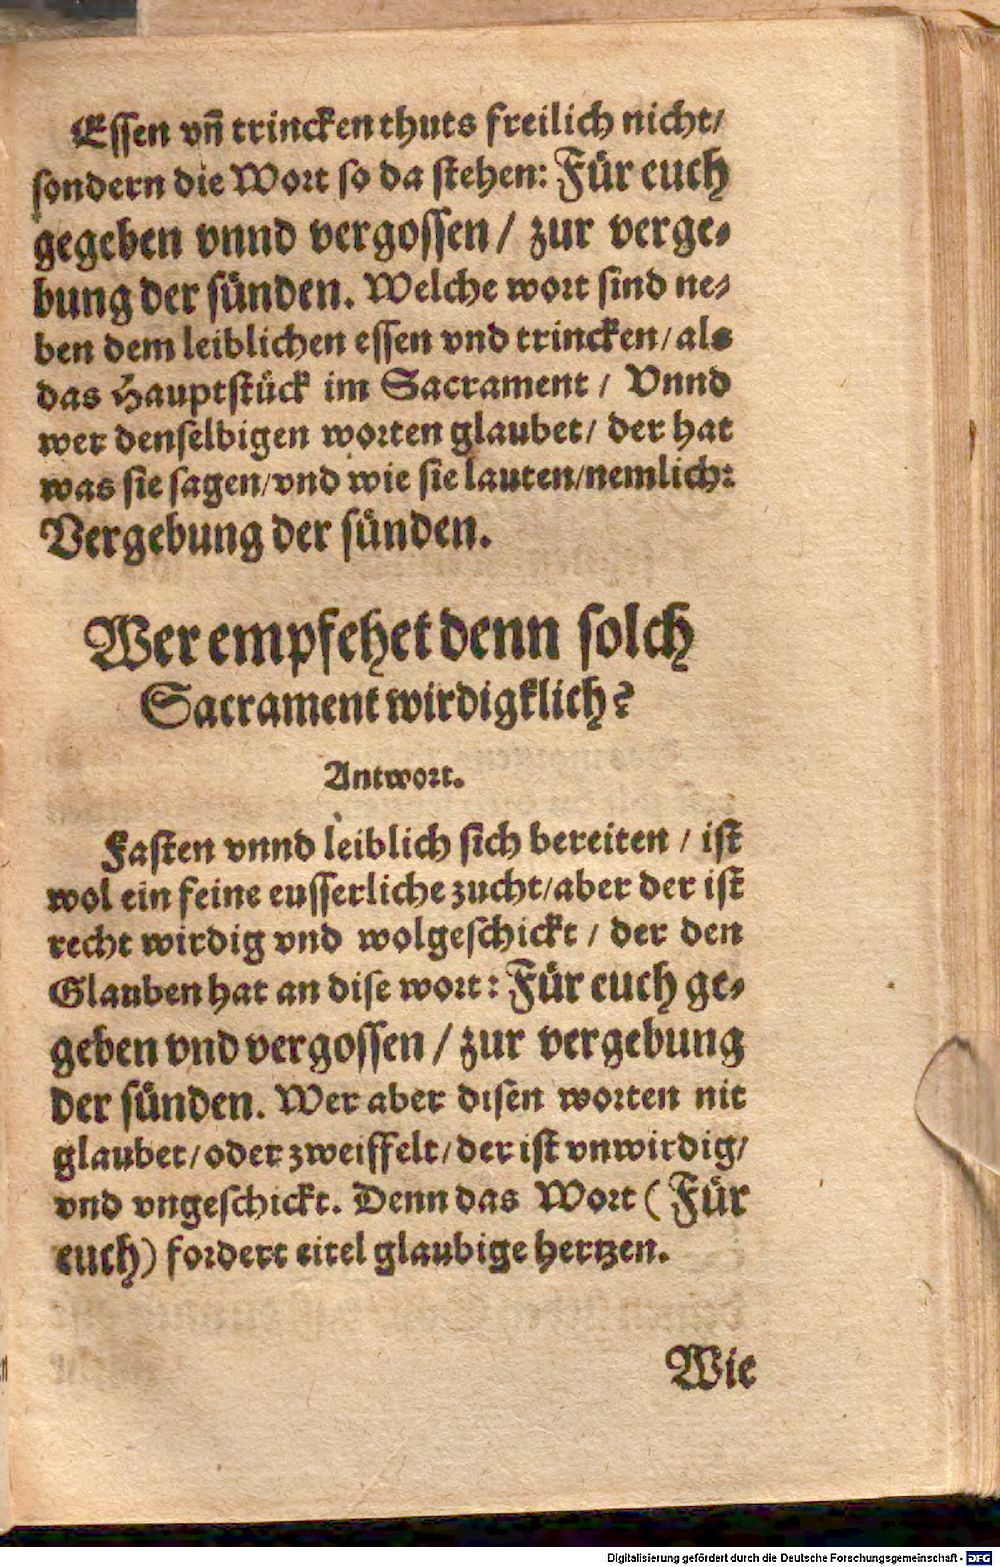 Essen vn̄ trincken thuts freilich nicht/
sondern die Wort so da stehen: Für euch
gegeben vnnd vergossen / zur verge-
bung der sünden. Welche wort sind ne-
ben dem leiblichen essen vnd trincken/als
das Hauptstück im Sacrament / Vnnd
wer denselbigen worten glaubet/ der hat
was sie sagen/vnd wie sie lauten/nemlich:
Vergebung der sünden.
Wer empfehet denn solch
Sacrament wirdigklich?
Antwort.
Fasten vnnd leiblich sich bereiten / ist
wol ein feine eusserliche zucht/aber der ist
recht wirdig vnd wolgeschickt / der den
Glauben hat an dise wort: Für euch ge-
geben vnd vergossen / zur vergebung
der sünden. Wer aber disen worten nit
glaubet/oder zweiffelt/der ist vnwirdig/
vnd vngeschickt. Denn das Wort ( Für
euch) fordert eitel glaubige hertzen.
Wie
Digitalisierung gefördert durch die Deutsche Forschungsgemeinschaft - DFG